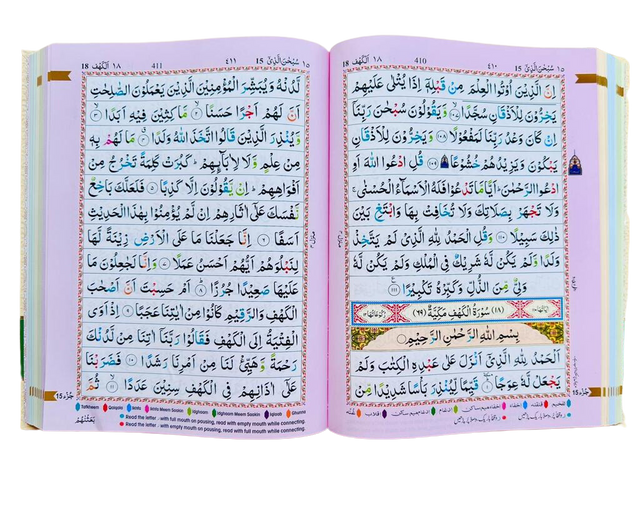 ١٥ سُبْحٰنَ الَّذِيْ 15 ٤١٠ 410 ١٨ اَلْكَهْف 18
اِنَّ الَّذِيْنَ اُوْتُوا الْعِلْمَ مِنْ قَبْلِهٖۤ اِذَا يُتْلٰى عَلَيْهِمْ
يَخِرُّوْنَ لِلْاَذْقَانِ سُجَّدًا ۙ ١٠٧ وَّيَقُوْلُوْنَ سُبْحٰنَ رَبِّنَاۤ
اِنْ كَانَ وَعْدُ رَبِّنَا لَمَفْعُوْلًا ١٠٨ وَيَخِرُّوْنَ لِلْاَذْقَانِ
يَبْكُوْنَ وَيَزِيْدُهُمْ خُشُوْعًا ١٠٩ قُلِ ادْعُوا اللّٰهَ اَوِ
ادْعُوا الرَّحْمٰنَ ؕ اَيًّا مَّا تَدْعُوْا فَلَهُ الْاَسْمَآءُ الْحُسْنٰى ۚ
وَلَا تَجْهَرْ بِصَلَاتِكَ وَلَا تُخَافِتْ بِهَا وَابْتَغِ بَيْنَ
ذٰلِكَ سَبِيْلًا ١١٠ وَقُلِ الْحَمْدُ لِلّٰهِ الَّذِيْ لَمْ يَتَّخِذْ
وَلَدًا وَّلَمْ يَكُنْ لَّهٗ شَرِيْكٌ فِى الْمُلْكِ وَلَمْ يَكُنْ لَّهٗ
وَلِيٌّ مِّنَ الذُّلِّ وَكَبِّرْهُ تَكْبِيْرًا ١١١
(١٨) سُوْرَةُ الْكَهْفِ مَكِّيَّةٌ (٦٩)
بِسْمِ اللّٰهِ الرَّحْمٰنِ الرَّحِيْمِ
اَلْحَمْدُ لِلّٰهِ الَّذِيْۤ اَنْزَلَ عَلٰى عَبْدِهِ الْكِتٰبَ وَلَمْ
يَجْعَلْ لَّهٗ عِوَجًا ١ قَيِّمًا لِّيُنْذِرَ بَاْسًا شَدِيْدًا مِّنْ
جزء ١٥ 15
١٥ سُبْحٰنَ الَّذِيْ 15 ٤١١ 411 ١٨ اَلْكَهْف 18
لَّدُنْهُ وَيُبَشِّرَ الْمُؤْمِنِيْنَ الَّذِيْنَ يَعْمَلُوْنَ الصّٰلِحٰتِ
اَنَّ لَهُمْ اَجْرًا حَسَنًا ٢ مَّاكِثِيْنَ فِيْهِ اَبَدًا ٣
وَّيُنْذِرَ الَّذِيْنَ قَالُوا اتَّخَذَ اللّٰهُ وَلَدًا ٤ مَا لَهُمْ بِهٖ
مِنْ عِلْمٍ وَّلَا لِاٰبَآئِهِمْ ؕ كَبُرَتْ كَلِمَةً تَخْرُجُ مِنْ
اَفْوَاهِهِمْ ؕ اِنْ يَّقُوْلُوْنَ اِلَّا كَذِبًا ٥ فَلَعَلَّكَ بَاخِعٌ
نَّفْسَكَ عَلٰۤى اٰثَارِهِمْ اِنْ لَّمْ يُؤْمِنُوْا بِهٰذَا الْحَدِيْثِ
اَسَفًا ٦ اِنَّا جَعَلْنَا مَا عَلَى الْاَرْضِ زِيْنَةً لَّهَا
لِنَبْلُوَهُمْ اَيُّهُمْ اَحْسَنُ عَمَلًا ٧ وَاِنَّا لَجٰعِلُوْنَ مَا
عَلَيْهَا صَعِيْدًا جُرُزًا ٨ اَمْ حَسِبْتَ اَنَّ اَصْحٰبَ
الْكَهْفِ وَالرَّقِيْمِ كَانُوْا مِنْ اٰيٰتِنَا عَجَبًا ٩ اِذْ اَوَى
الْفِتْيَةُ اِلَى الْكَهْفِ فَقَالُوْا رَبَّنَاۤ اٰتِنَا مِنْ لَّدُنْكَ
رَحْمَةً وَّهَيِّئْ لَنَا مِنْ اَمْرِنَا رَشَدًا ١٠ فَضَرَبْنَا
عَلٰۤى اٰذَانِهِمْ فِى الْكَهْفِ سِنِيْنَ عَدَدًا ١١ ثُمَّ
بَعَثْنٰهُمْ
15 جزء ١٥
Tafkheem Qalqala Ikhfa Ikhfa Meem Saakin Idghaam Idghaam Meem Saakin Iqlaab Ghunna
Read the letter . with full mouth on pausing, read with empty mouth while connecting.
Read the letter . with empty mouth on pausing, read with full mouth while connecting.